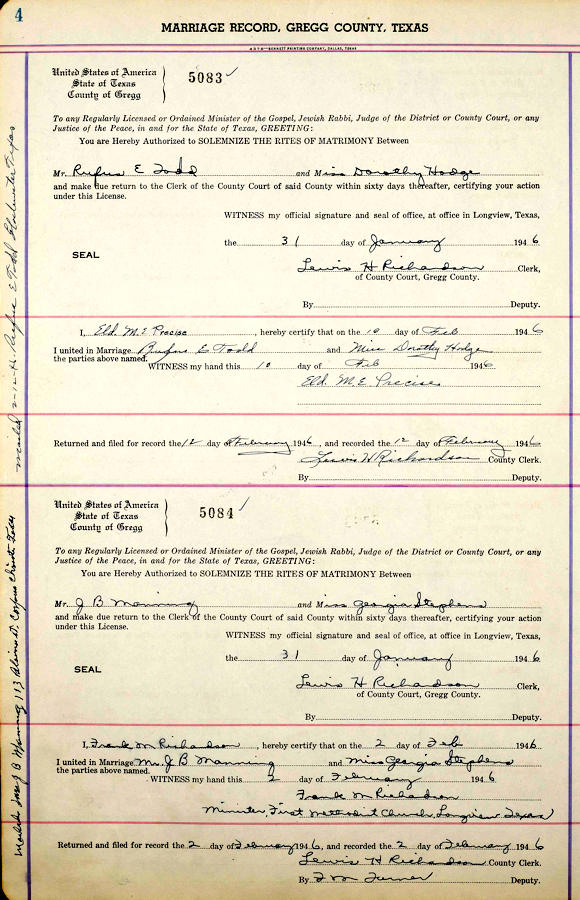 4
MARRIAGE RECORD, GREGG COUNTY, TEXAS
United States of America
State of Texas
County of Gregg
5083 ✓
To any Regularly Licensed or Ordained Minister of the Gospel, Jewish Rabbi, Judge of the District or County Court, or any
Justice of the Peace, in and for the State of Texas, GREETING:
You are Hereby Authorized to SOLEMNIZE THE RITES OF MATRIMONY Between
Mr. Rufus E Todd and Miss Dorothy Hodge
and make due return to the Clerk of the County Court of said County within sixty days thereafter, certifying your action
under this License.
WITNESS my official signature and seal of office, at office in Longview, Texas,
the 31 day of January 1946
SEAL
Lewis H Richardson Clerk,
of County Court, Gregg County.
By Deputy.
I, Eld. M.E. Precise, hereby certify that on the 10 day of Feb 1946
I united in Marriage Rufus E Todd and Miss Dorothy Hodge
the parties above named.
WITNESS my hand this 10 day of Feb 1946
Eld. M.E. Precise
Returned and filed for record the 12 day of February 1946, and recorded the 12 day of February 1946
Lewis H Richardson County Clerk.
By Deputy.
United States of America
State of Texas
County of Gregg
5084 ✓
To any Regularly Licensed or Ordained Minister of the Gospel, Jewish Rabbi, Judge of the District or County Court, or any
Justice of the Peace, in and for the State of Texas, GREETING:
You are Hereby Authorized to SOLEMNIZE THE RITES OF MATRIMONY Between
Mr. J B Manning and Miss Georgia Stephens
and make due return to the Clerk of the County Court of said County within sixty days thereafter, certifying your action
under this License.
WITNESS my official signature and seal of office, at office in Longview, Texas,
the 31 day of January 1946
SEAL
Lewis H Richardson Clerk,
of County Court, Gregg County.
By Deputy.
I, Frank M Richardson, hereby certify that on the 2 day of Feb 1946
I united in Marriage Mr. J B Manning and Miss Georgia Stephens
the parties above named.
WITNESS my hand this 2 day of February 1946
Frank M Richardson
Minister, First Methodist Church, Longview, Texas
Returned and filed for record the 2 day of February 1946, and recorded the 2 day of February 1946
Lewis H Richardson County Clerk.
By F M Turner Deputy.
Mailed 2-12-46 Rufus E Todd Gladewater Texas
J B Manning 113 St. Corpus Christi